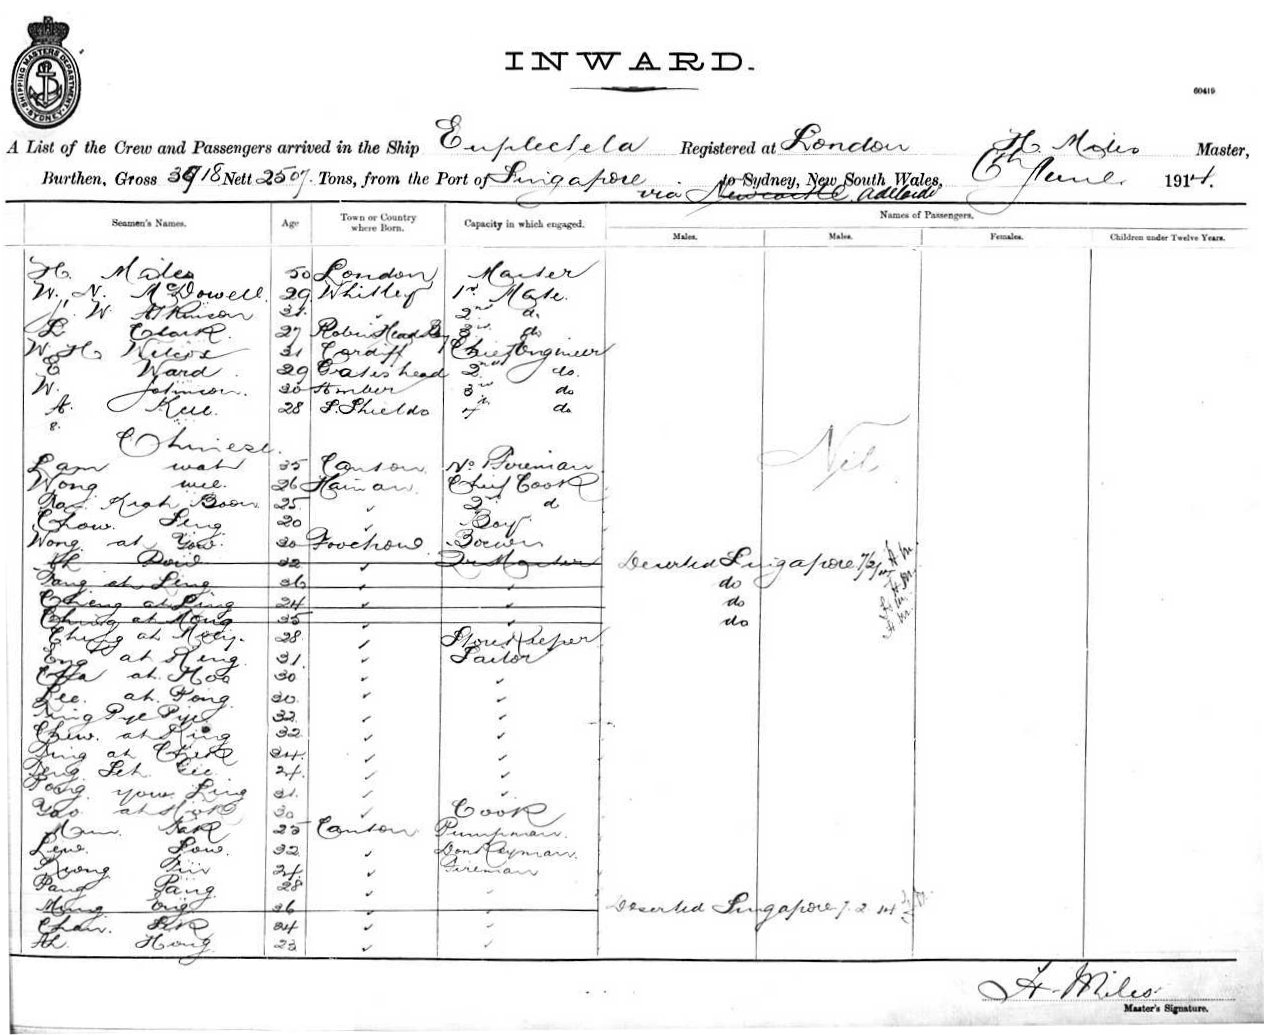 SHIPPING MASTERS DEPARTMENT
SYDNEY
INWARD.
60419
A List of the Crew and Passengers arrived in the Ship Euplectela Registered at London H. Miles Master,
Burthen, Gross 3918 Nett 2507. Tons, from the Port of Singapore to Sydney, New South Wales, 6th June 1914.
via Newcastle Adelaide
Seamen's Names. Age Town or Country where Born. Capacity in which engaged. Names of Passengers.
Males. Males. Females. Children under Twelve Years.
H. Miles 50 London Master
W. N. McDowell 29 Whitley 1st Mate.
J. W. Atkinson 31 " 2nd do
L Clark 27 Robin Head Bay 3rd do
W. H. Wilcox 31 Cardiff Chief Engineer
E Ward 29 Gateshead 2nd do.
W. Johnson. 30 Amber 3rd do
A. Kell 28 S. Shields 4th do
8.
Chinese.
Nil
Lam wah 35 Canton No Fireman
Wong wee 26 Hainan Chief Cook
Kiah Boon 25 " 2nd d
Chow Seng 20 " Boy
Wong at Yow 30 Foochow Bosun
Ah Dow 32 " Qr Master Deserted Singapore 7/2/14 H.M.
Tang at Ling 36 " " do H.M.
Cheng at Ling 24 " " do H.M.
Ching at Mong 35 " " do H.M.
Ching at Moey. 28 " Store Keeper
Eng at Heng 31 " Sailor
at Hoo 30 " "
Lee at Tong 30 " "
Ting Pye Pye 32 " "
Chew at King 32 " "
Ting at Chek 34 " "
Teng Seh 24 " "
Tong yow Ling 31 " "
Yao at Hok 30 " Cook
Mam Tak 25 Canton Pumpman.
Lew Low. 32 " Donkeyman.
Kwong Tin 24 " Fireman
Pang Tang 28 " "
Ming Ong 36 " " Deserted Singapore 7.2.14
Chan Sek 34 " "
Ah Hong 23 " "
H. Miles
Master's Signature.